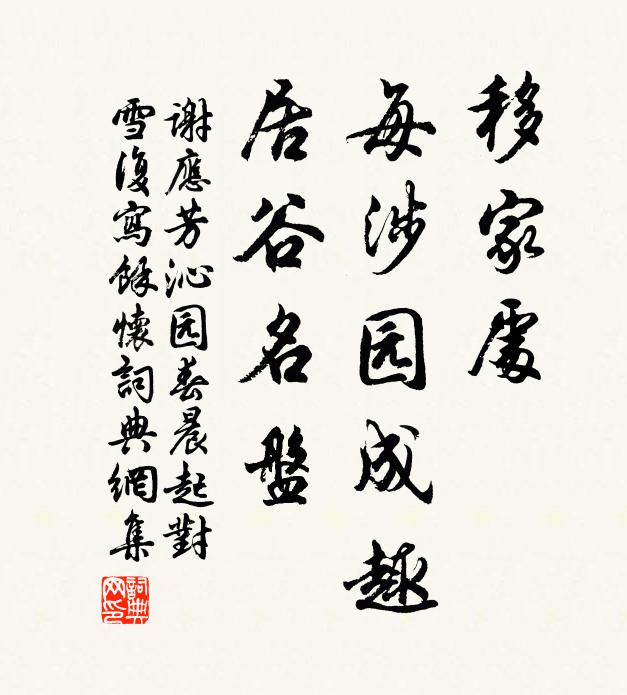 移家處
每涉园成趣
居谷名盤
謝應芳沁园春晨起對
雪復寫餘懷詞典網集
詞典网印